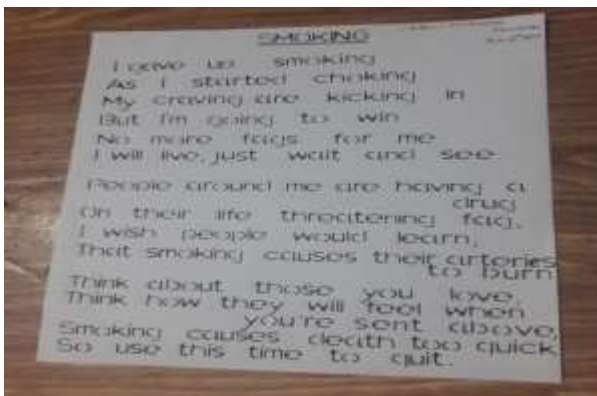 SMOKING
I gave up smoking
As I started choking
My craving are kicking in
But I'm going to win
No more fags for me
I will live, just wait and see
People around me are having a
drag
On their life threatening fag.
I wish people would learn,
That smoking causes their arteries
to burn
Think about those you love.
Think how they will feel when
you're sent above,
Smoking causes death too quick
So use this time to quit.